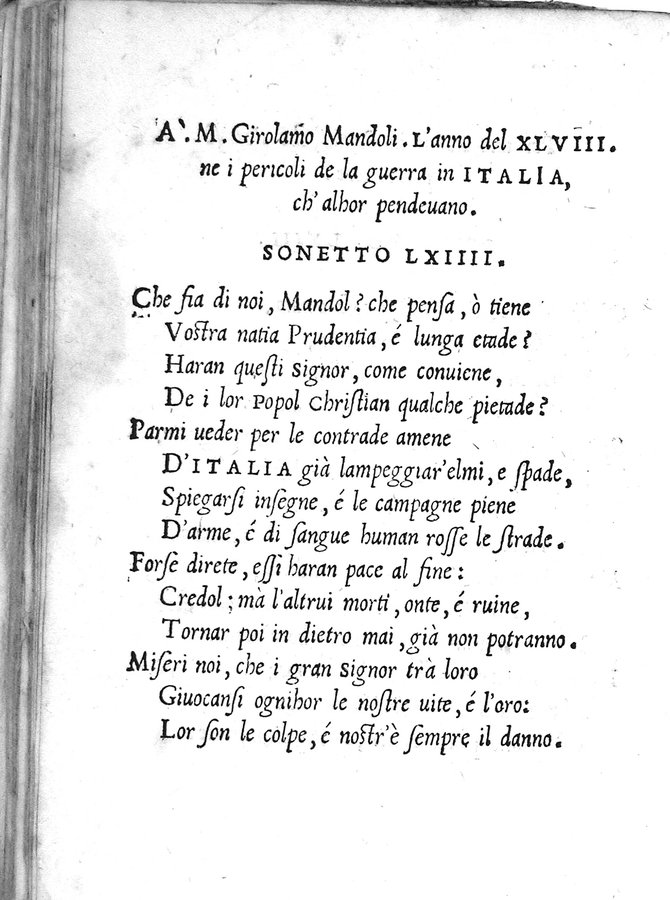 A`. M. Girolam̄o Mandoli. L'anno del XLVIII.
ne i pericoli de la guerra in ITALIA,
ch' alhor pendeuano.
SONETTO LXIIII.
Che ſia di noi, Mandol? che penſa, ò tiene
Voſtra natia Prudentia, é lunga etade?
Haran queſti signor, come conuiene,
De i lor popol Chriſtian qualche pietade?
Parmi ueder per le contrade amene
D'ITALIA già lampeggiar'elmi, e ſpade,
Spiegarſi inſegne, é le campagne piene
D'arme, é di ſangue human roſſe le ſtrade.
Forſe direte, eſſi haran pace al fine:
Credol; mà l'altrui morti, onte, é ruine,
Tornar poi in dietro mai, già non potranno.
Miſeri noi, che i gran signor trà loro
Giuocanſi ognihor le noſtre uite, é l'oro:
Lor ſon le colpe, é noſtr'è ſempre il danno.